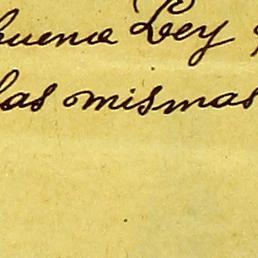 buena Ley
las mismas